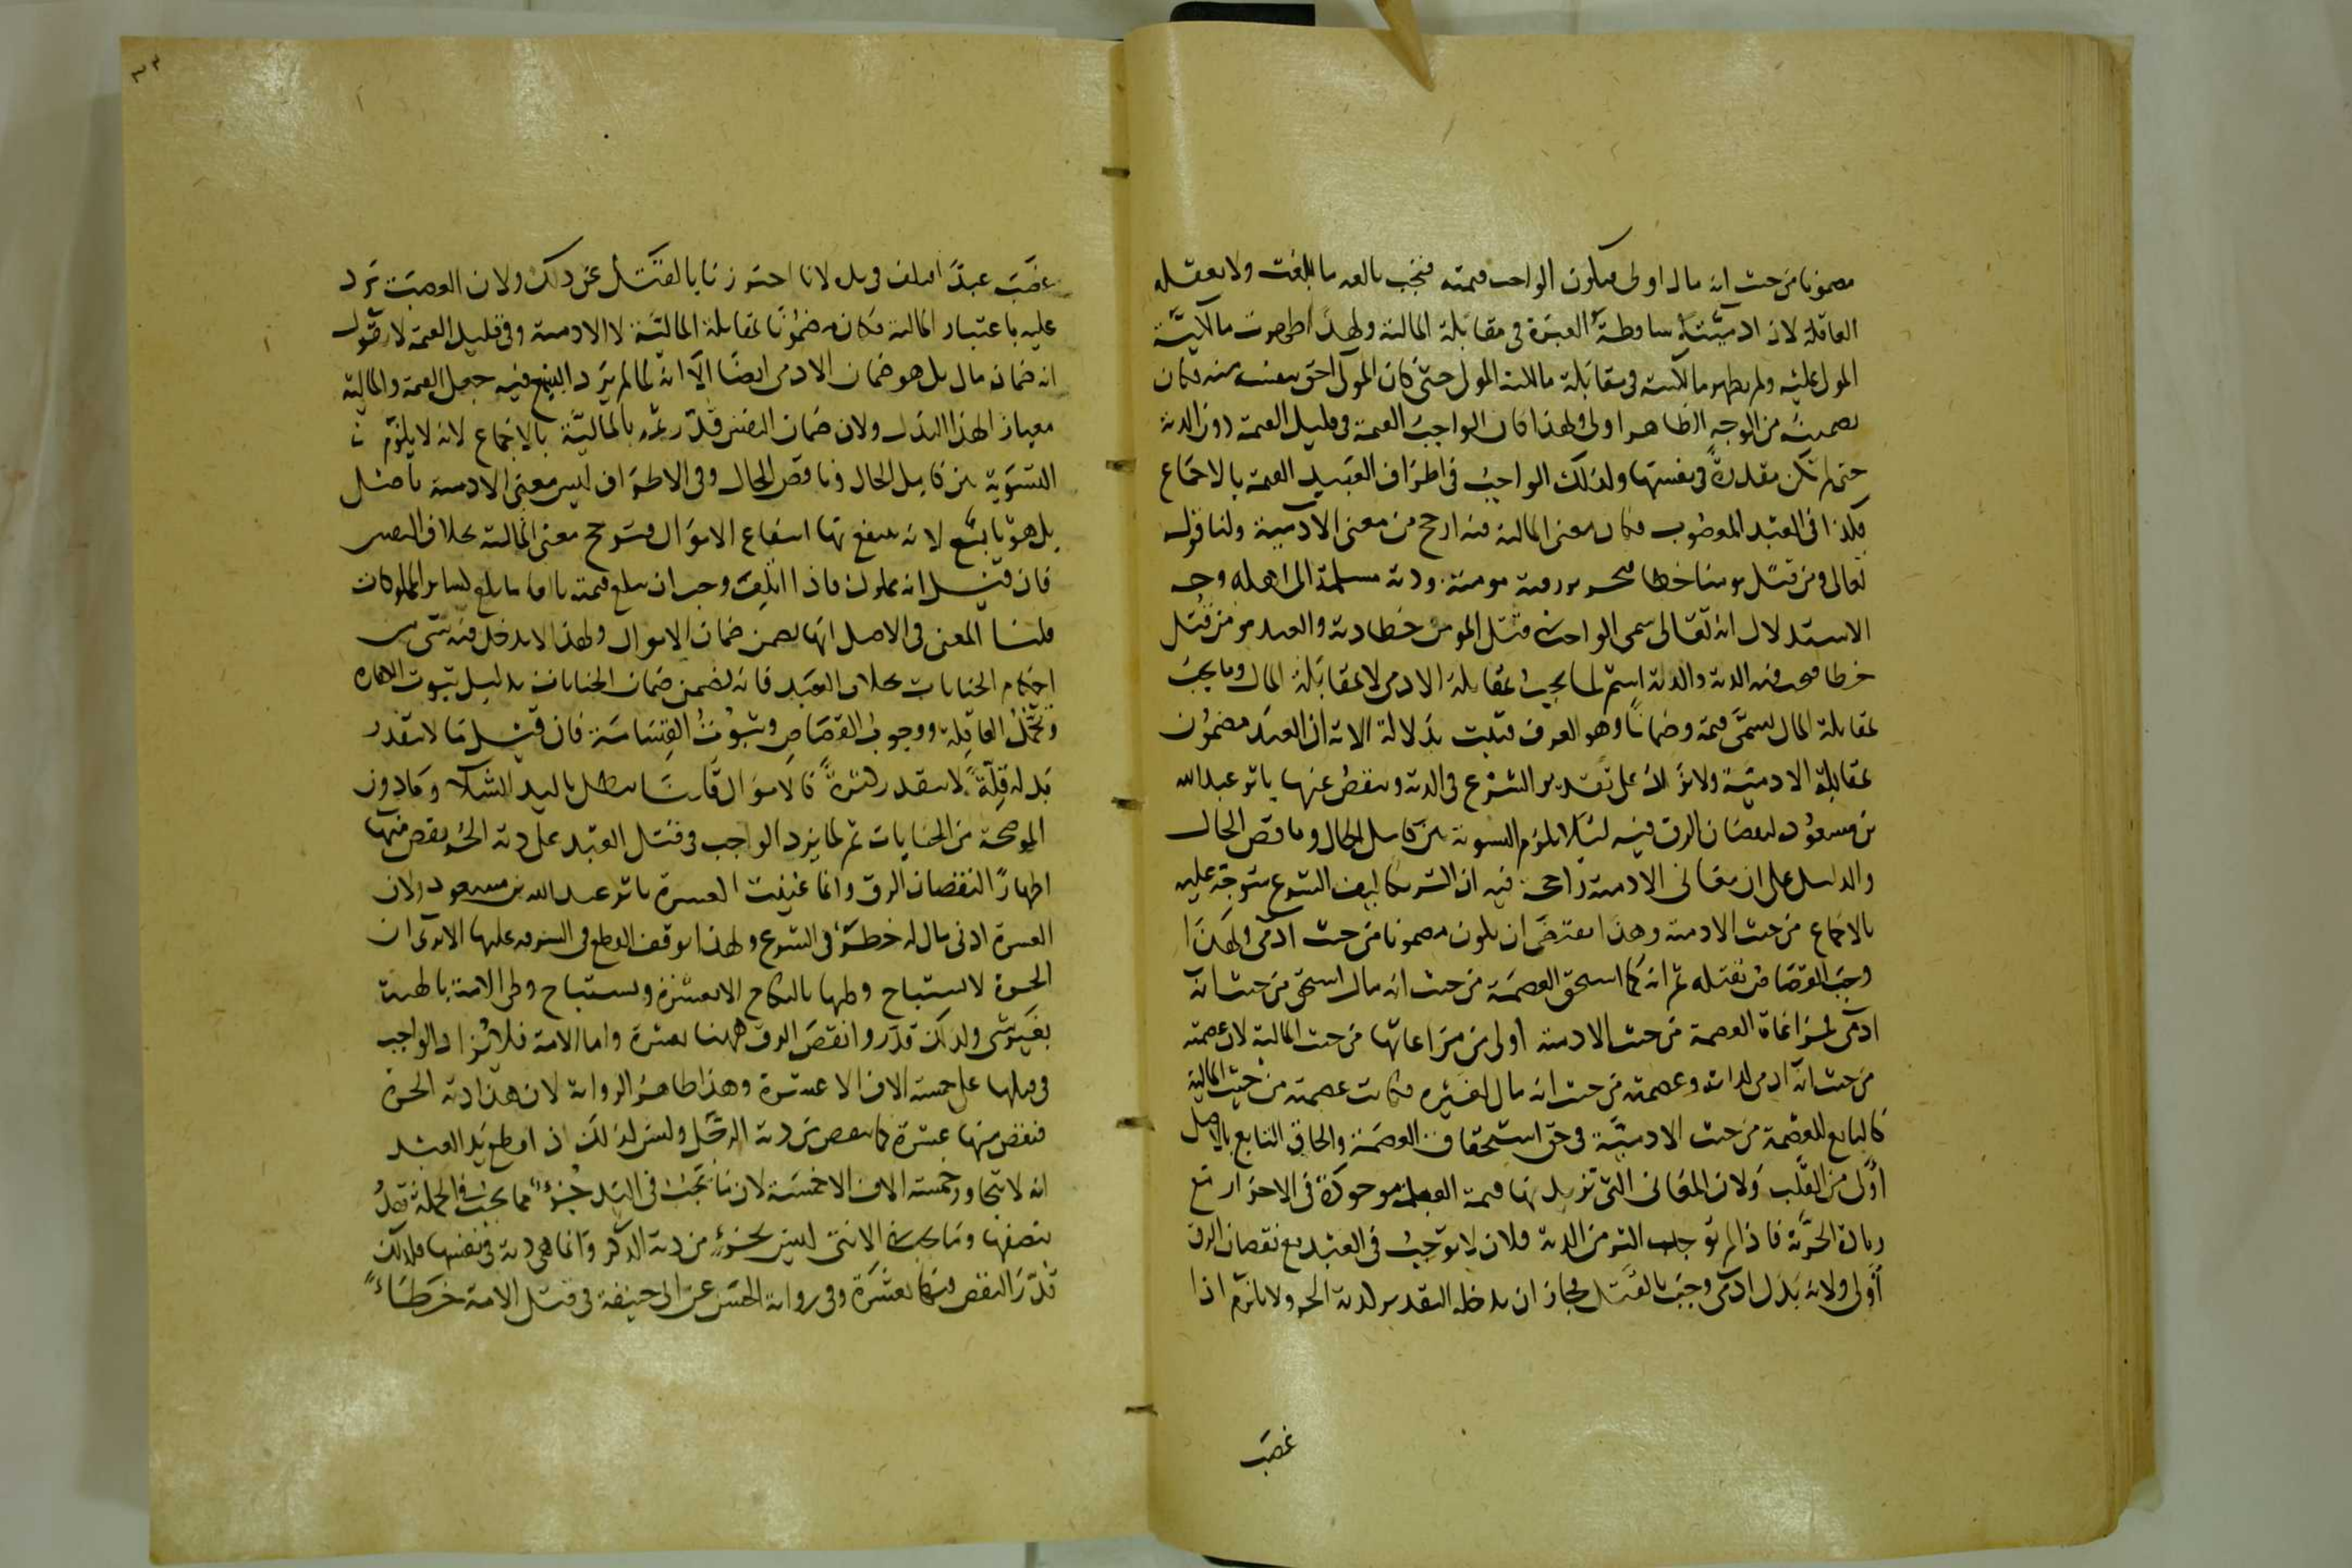 مضمونا من حيث انه مال اولى فيكون الواجب قيمته فتجب بالغة ما بلغت ولا تعقله
العاقلة لان ادميته ساقطة العبرة فى مقابلة المالية ولهذا ظهرت مالكية
المولى عليه ولم يظهر مالكيته فى مقابلة مالكية المولى حتى كان المولى احق بنفسه منه فكان
تضمينه من الوجه الظاهر اولى ولهذا كان الواجب القيمة فى قليل القيمة دون الدية
حتى لم تكن مقدرة فى نفسها ولذلك الواجب فى اطراف العبيد القيمة بالاجماع
فكذا فى العبد المغصوب فكان معنى المالية فيه ارجح من معنى الآدمية ولنا قوله
تعالى ومن قتل مومنا خطا فتحرير رقبة مومنة ودية مسلمة الى اهله وجه
الاستدلال انه تعالى سمى الواجب فى قتل المومن خطا دية والعبد مومن قتل
خطا فيجب فيه الدية والدية اسم لما يجب بمقابلة الادمى لا بمقابلة المال وما يجب
بمقابلة المال يسمى قيمة وضمانا وهو العرف فثبت بدلالة الاية ان العبد مضمون
بمقابلة الادمية ولا يزاد على تقدير الشرع فى الدية وينقص عنها باثر عبد الله
بن مسعود لنقصان الرق فيه لئلا يلزم التسوية بين كامل الحال وناقص الحال
والدليل على ان معانى الادمية راجحة فيه ان اكثر تكاليف الشرع متوجه عليه
بالاجماع من حيث الادمية وهذا يقتضى ان يكون مضمونا من حيث ادمى ولهذا
وجب القصاص بقتله ثم انه كما استحق العصمة من حيث انه مال استحق من حيث انه
ادمى فمراعاة العصمة من حيث الادمية اولى من مراعاتها من حيث المالية لان عصمته
من حيث انه ادمى لذاته وعصمته من حيث انه مال لغيره فكانت عصمته من حيث المالية
كالتابع للعصمة من حيث الادمية فى حق استحقاق العصمة والحاق التابع بالاصل
اولى من القلب ولان المعانى التى تزيد بها قيمة العبد موجودة فى الاحرار مع
زيادة الحرية فاذا لم توجب اكثر من الدية فلان لا توجب فى العبد مع نقصان الرق
اولى ولانه بدل ادمى وجب بالقتل فجاز ان يدخله التقدير لدية الحر ولا يلزم اذا
غصب
غصب عبدا فتلف فى يده لانا احترزنا بالقتل عن ذلك ولان الغصب يرد
عليه باعتبار المالية فكان مضمونا بمقابلة المالية لا الادمية وفى قليل القيمة لا نقول
انه ضمان مال بل هو ضمان الادمى ايضا الا انه لما لم يرد الشرع فيه جعل القيمة والمالية
معيارا لهذا البدل ولان ضمان النفس قدر بالمالية بالاجماع لانه لا يلزم
التسوية بين كامل الحال وناقص الحال وفى الاطراف ليس معنى الادمية باصل
بل هو تابع لانه ينتفع بها انتفاع الاموال فترجح معنى المالية بخلاف النفس
فان قيل انه مملوك فاذا اتلف وجب ان يبلغ قيمته بالغا ما بلغ كسائر المملوكات
قلنا المعنى فى الاصل انها تضمن ضمان الاموال ولهذا لا يدخل فيه شى من
احكام الجنايات بخلاف العبد فانه يضمن ضمان الجنايات بدليل ثبوت الكفارة
وتحمل العاقلة ووجوب القصاص وثبوت القسامة فان قيل ما لا يتقدر
بدله قلة لا يتقدر كثرة كالاموال قلنا يبطل باليد الشلا وما دون
الموضحة من الجنايات ثم لما يزد الواجب فى قتل العبد على دية الحر ينقص منها
اظهارا لنقصان الرق وانما عينت العشرة باثر عبد الله بن مسعود ولان
العشرة ادنى مال له خطر فى الشرع ولهذا توقف القطع فى السرقة عليها الا ترى ان
الحرة لا يستباح وطيها بالنكاح الا بعشرة ويستباح وطى الامة باطنة
بغير شى ولذلك قدروا نقص الرق ههنا بعشرة واما الامة فلا يزاد الواجب
فى قتلها على خمسة الاف الا عشرة وهذا ظاهر الرواية لان هذا دية الحرة
فنقص منها عشرة كما ينقص من دية الرجل وليس كذلك اذا قطع يد العبد
انه لا يتجاوز خمسة الاف الا خمسة لان ما يجب فى اليد جزء مما يجب فى الجملة
نصفها وما يجب فى الانثى ليس بجزء من دية الذكر وانما هى دية فى نفسها فلذلك
قدر النقص منها بعشرة وفى رواية الحسن عن ابى حنيفة فى قتل الامة خطاء